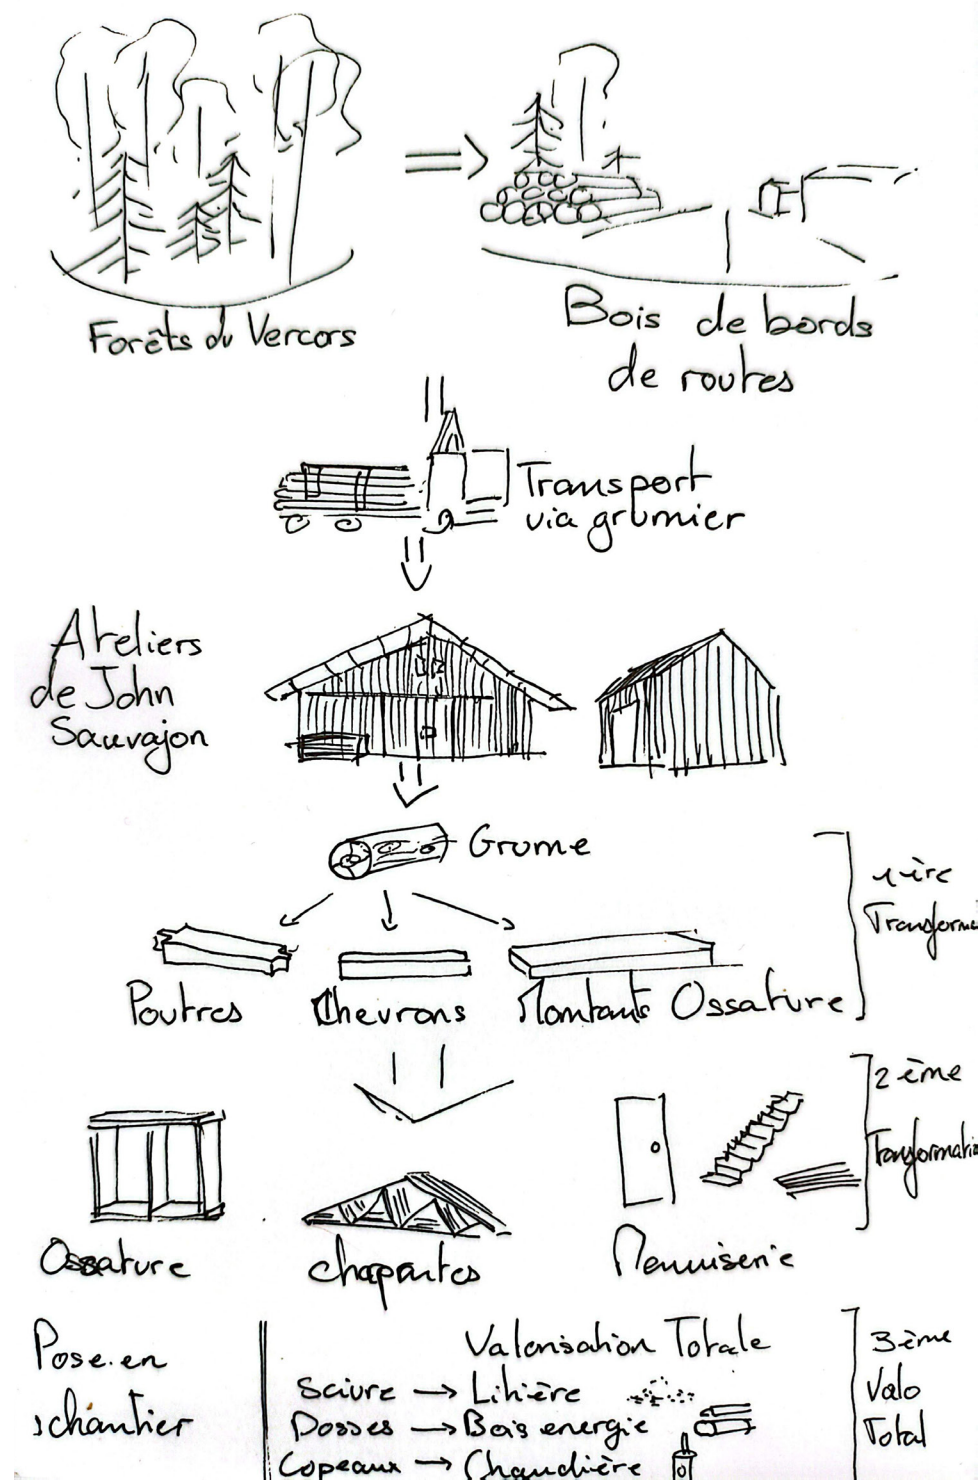 Forêts du Vercors
Bois de bords
de routes
Transport
via grumier
Ateliers
de John
Sauvajon
Grume
1ère
Transforma
Poutres Chevrons Montants Ossature
2ème
Transformatio
Ossature chapantes Menuiserie
Pose en
chantier
Valorisation Totale
Sciure → Litière
Dosses → Bois energie
Copeaux → Chaudière
3ème
Valo
Total